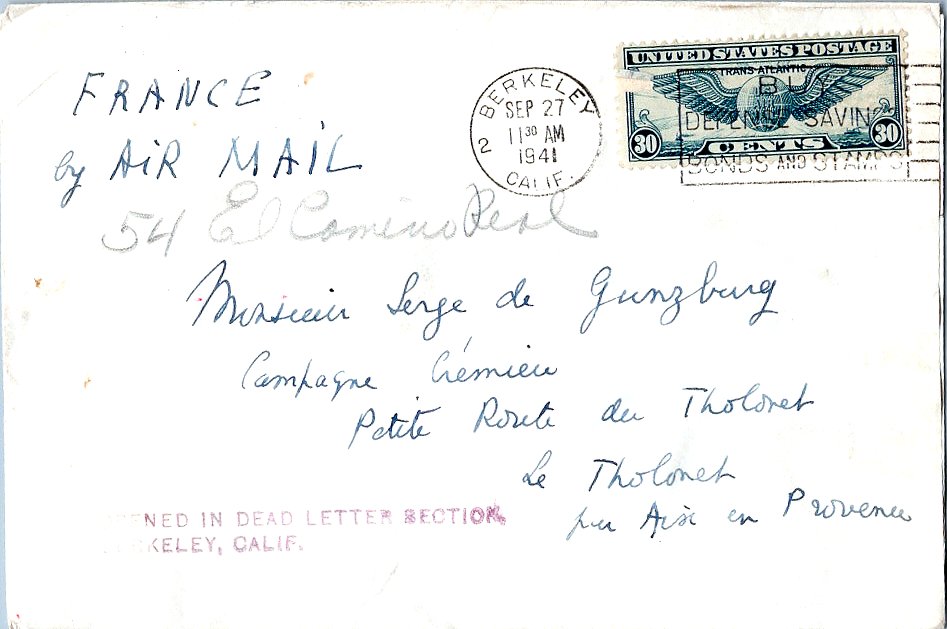 UNITED STATES POSTAGE
TRANS-ATLANTIC
30 CENTS 30
BERKELEY
SEP 27
11 30 AM
1941
2
CALIF.
BUY
DEFENSE SAVINGS
BONDS AND STAMPS
FRANCE
by AiR MAiL
54 El Camino Real
Monsieur Serge de Gunzburg
Campagne Crémieu
Petite Route du Tholonet
Le Tholonet
par Aix en Provence
OPENED IN DEAD LETTER SECTION,
BERKELEY, CALIF.